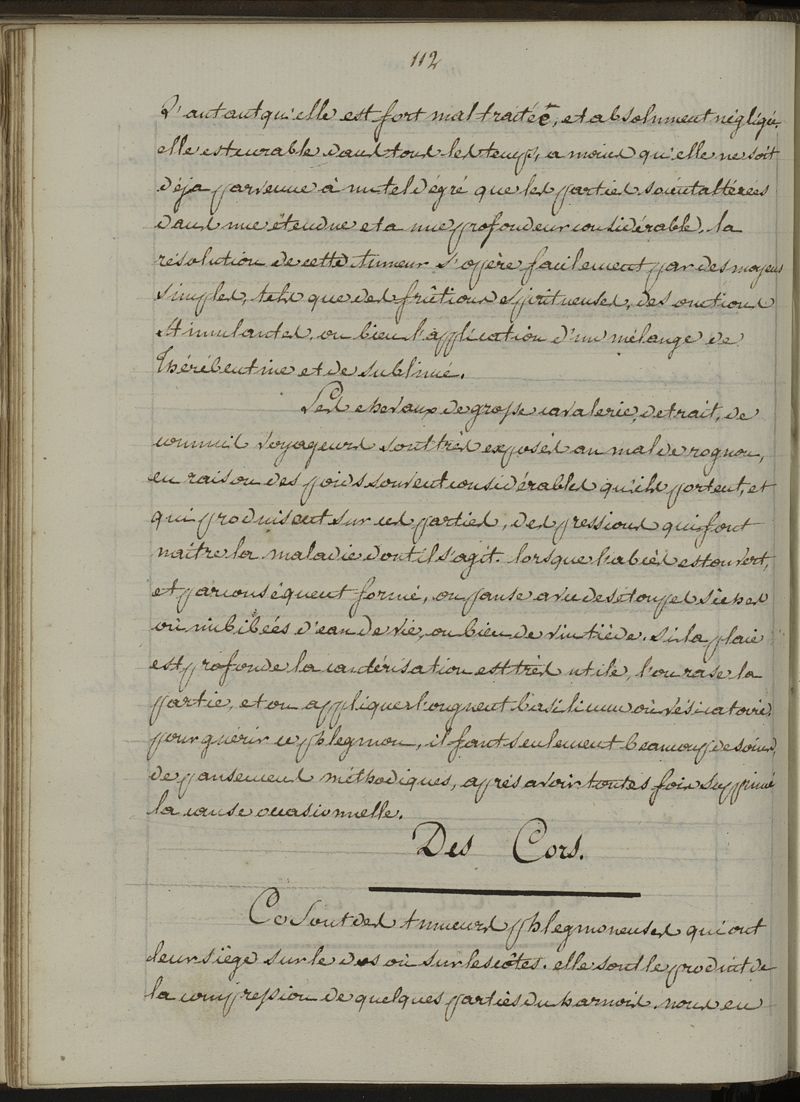 112
D'autant qu'elle est fort mal traitée, et absolument négligée.
elle est curable dans tous les temps, a moins qu'elle ne soit
déja parvenue à un tel dégré que les parties soient altérées
dans une étendue et a une profondeur considérable. la
résolution de cette tumeur s'opère facilement par des moyens
simples, tels que des frictions spiritueuses, des onctions
stimulantes, ou bien l'application d'un mélange de
thérébentine et de sublimé.
Les chevaux de grosse cavalerie, de trait, de
commis voyageurs sont très exposés au mal de rognon,
en raison des poids souvent considérables qu'ils portent, et
qui produisent sur ces parties, des pressions qui font
naître la maladie dont il s'agit. lorsque l'abcès est ouvert,
et par conséquent formé, on panse avec des étoupes sèches
où imbibées d'eau de vie, ou bien de vin tiède. si la plaie
est profonde la cautérisation est très utile, l'on rase la
partie, et on applique l'onguent basilicum où vésicatoire,
pour guérir ce phlegmon, il faut seulement beaucoup de soins,
de pansemens méthodiques, après avoir toutes fois supprimé
la cause occasionnelle.
Des Cors.
Ce sont des tumeurs phlegmoneuses qui ont
leur siège sur le dos où sur les côtes. elle sont le produit de
la compression de quelques parties du harnois. nous en